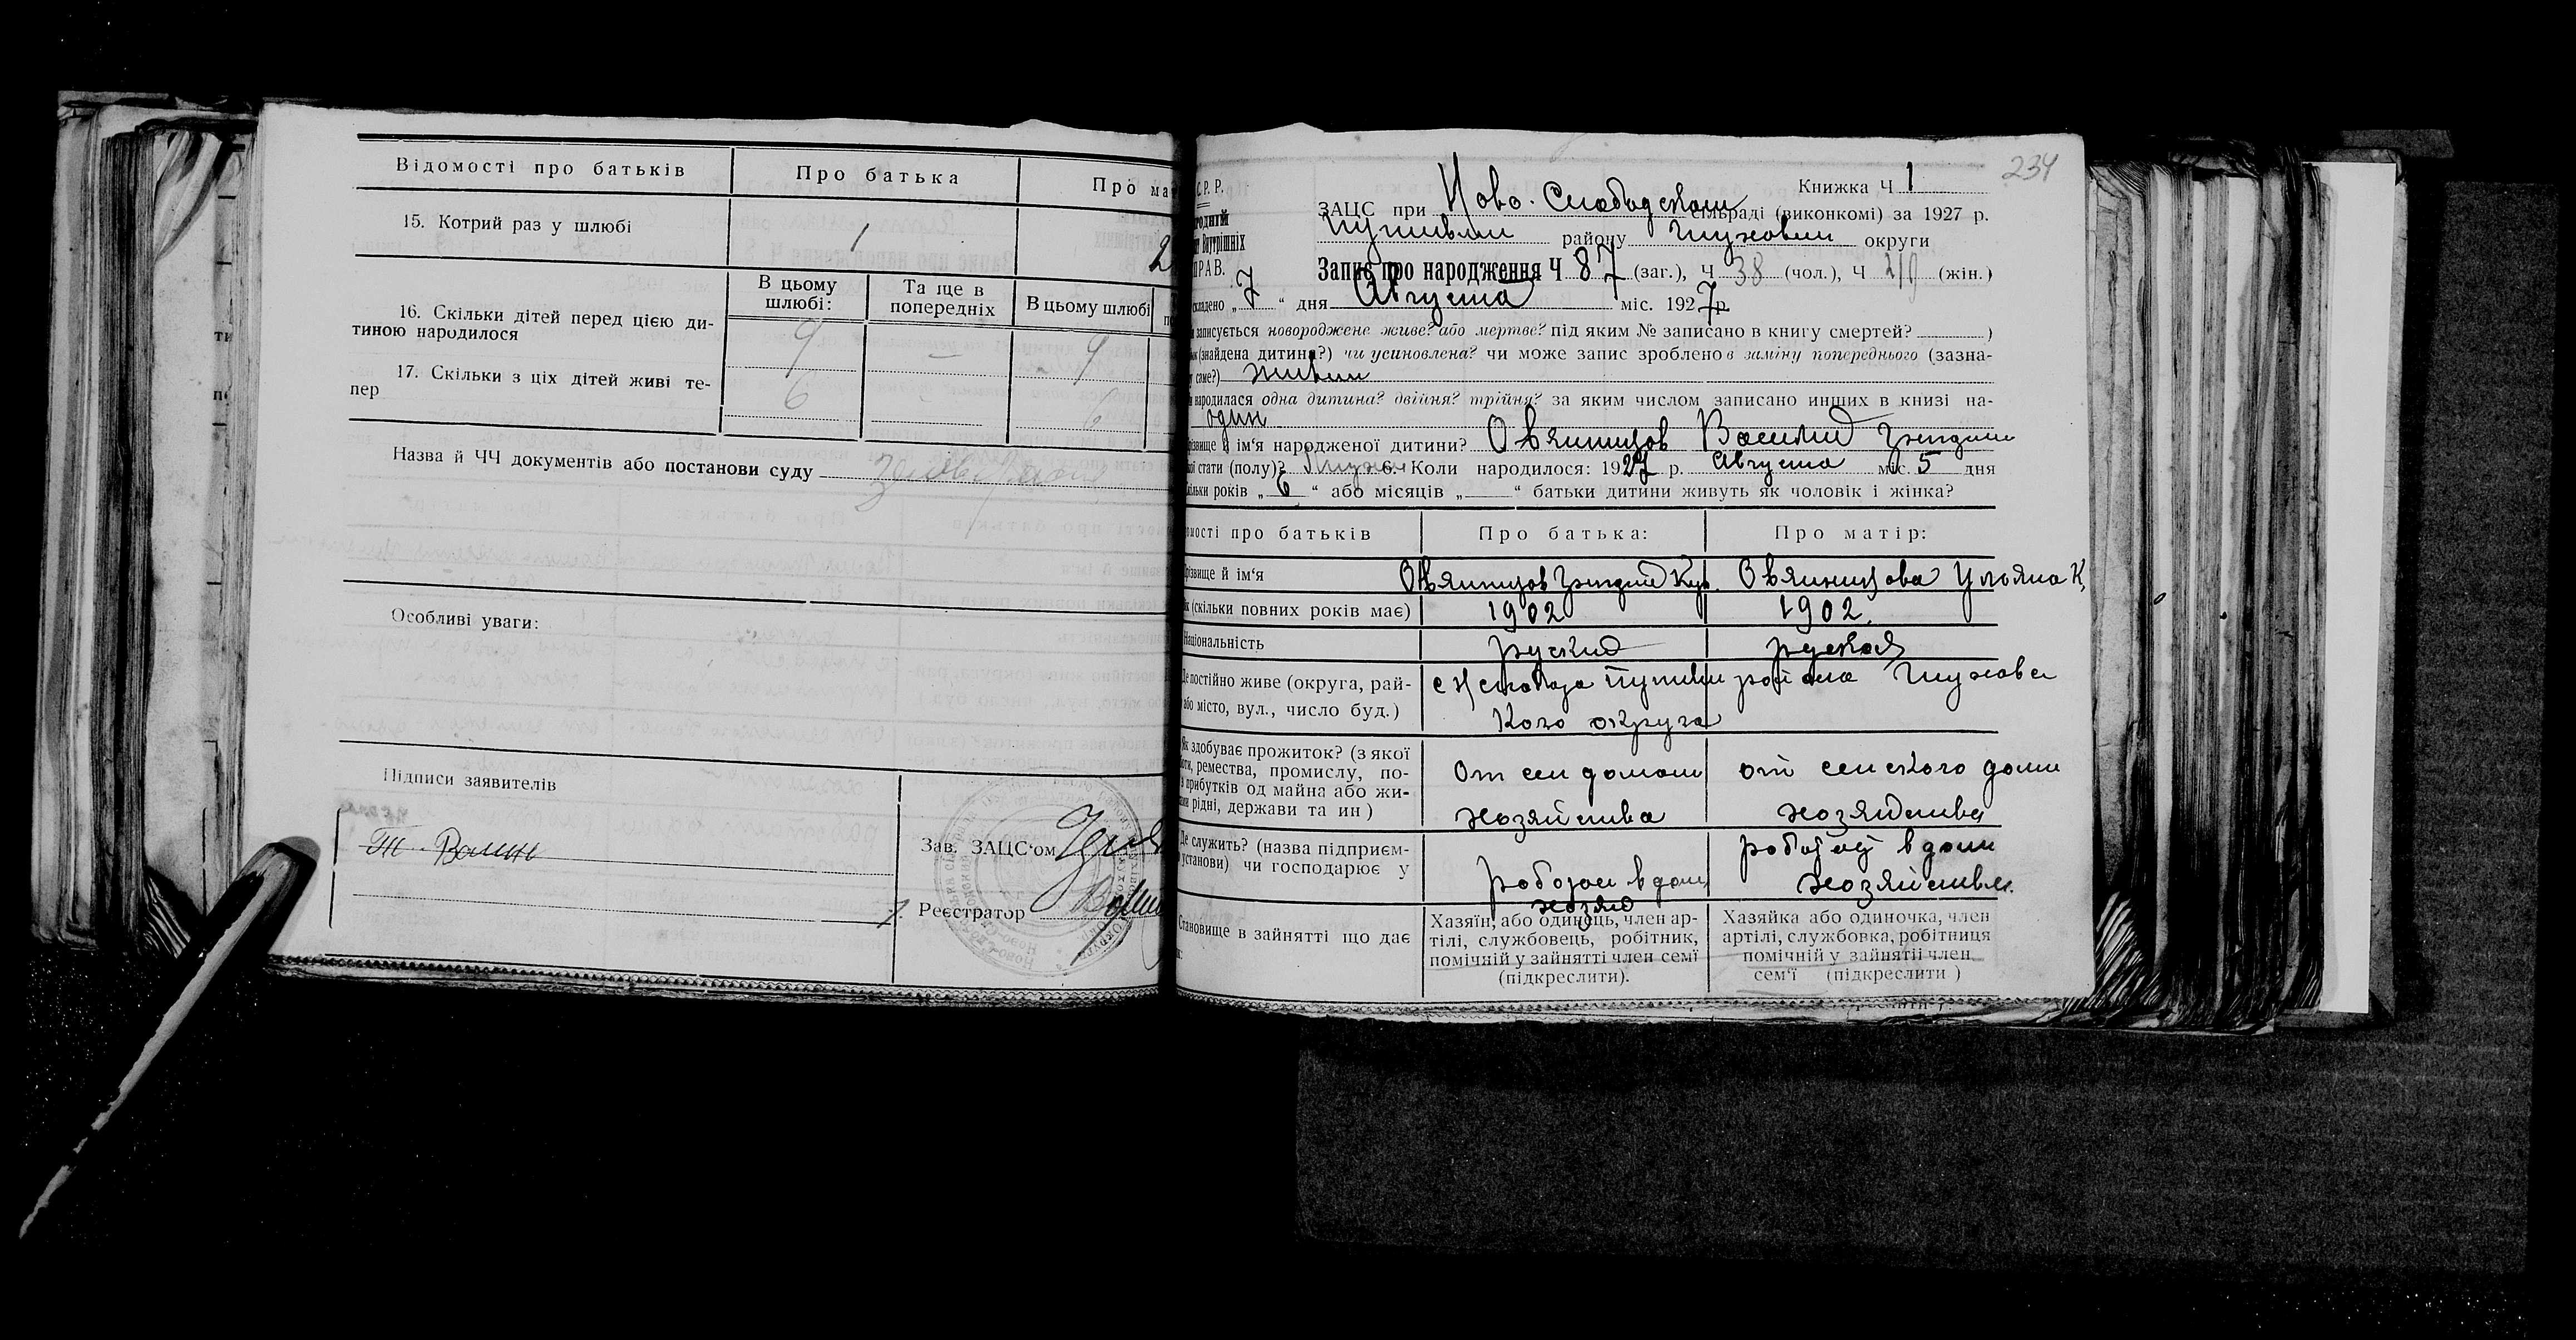 Відомості про батьків
Про батька
Про ма
15. Котрий раз у шлюбі
1
2
В цьому шлюбі:
Та ще в попередніх
В цьому шлюбі
16. Скільки дітей перед цією ди-
тиною народилося
9
—
9
17. Скільки з ціх дітей живі те-
пер
6
6
Назва й ЧЧ документів або постанови суду
Особливі уваги:
Підписи заявителів
Зав. ЗАЦС'ом
Реєстратор
234
С.Р.Р.
Книжка Ч 1
родний
ЗАЦС при Ново-Слободском сільраді (виконкомі) за 1927 р.
Внутрішніх
Путивл району Глухови округи
ПРАВ.
Запис про народження Ч 87 (заг.), Ч 38 (чол.), Ч (жін.)
складено „7“ дня Августа міс. 1927 р.
записується новороджене живе? або мертве? під яким № записано в книгу смертей? )
(знайдена дитина?) чи усиновлена? чи може запис зроблено в заміну попереднього (зазна-
саме?) живим
народилася одна дитина? двійня? трійня? за яким числом записано инших в книзі на-
один
різвище й ім'я народженої дитини? Овянников Василий
стати (полу)? 6. Коли народилося: 1927 р. Августа міс. 5 дня
ільки років „6“ або місяців „ “ батьки дитини живуть як чоловік і жінка?
омості про батьків
Про батька:
Про матір:
різвище й ім'я
Овянникова Ульяна К.
к (скільки повних років має)
1902
1902.
Національність
руский
руская
Де постійно живе (округа, рай-
або місто, вул., число буд.)
с Н слобода Путивл района Глуховс
кого округа
Як здобуває прожиток? (з якої
оти, ремества, промислу, по-
прибутків од майна або жи-
рідні, держави та ин)
От сел домаш
хозяйства
от селского дома
хозяйства
Де служить? (назва підприєм-
установи) чи господарює у
в дом
хозяй
в дом
хозяйстве.
Становище в зайнятті що дає
Хазяїн, або одинець, член ар-
тілі, службовець, робітник,
помічній у зайнятті член семї
(підкреслити).
Хазяйка або одиночка, член
артілі, службовка, робітниця
помічній у зайнятії член
сем'ї (підкреслити )